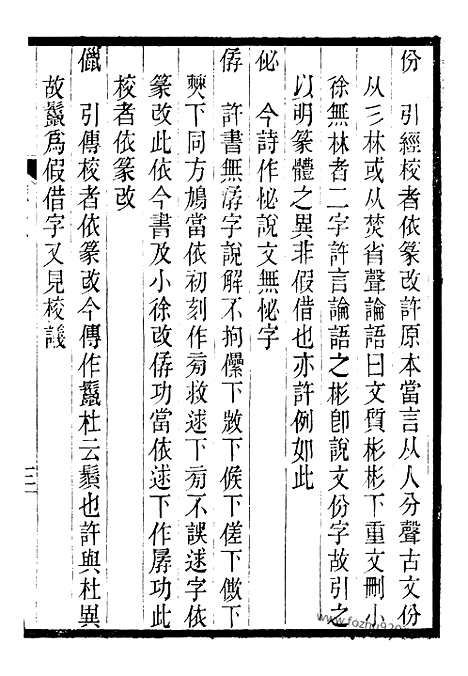 份　引經校者依篆改許原本當言从人分聲古文份
从彡林或从焚省聲論語曰文質彬彬下重文刪小
徐無林者二字許言論語之彬卽說文份字故引之
以明篆體之異非假借也亦許例如此
佖　今詩作怭說文無怭字
僝　許書無孱字說解不拘儽下敳下俟下傞下儆下
㒸下同方鳩當依初刻作㫄救逑下㫄不誤逑字依
篆改此依今書及小徐改僝功當依逑下作孱功此
校者依篆改
儠　引傳校者依篆改今傳作鬣杜云鬚也許與杜異
故鬣爲假借字又見校議
三
www.fozhu920.com